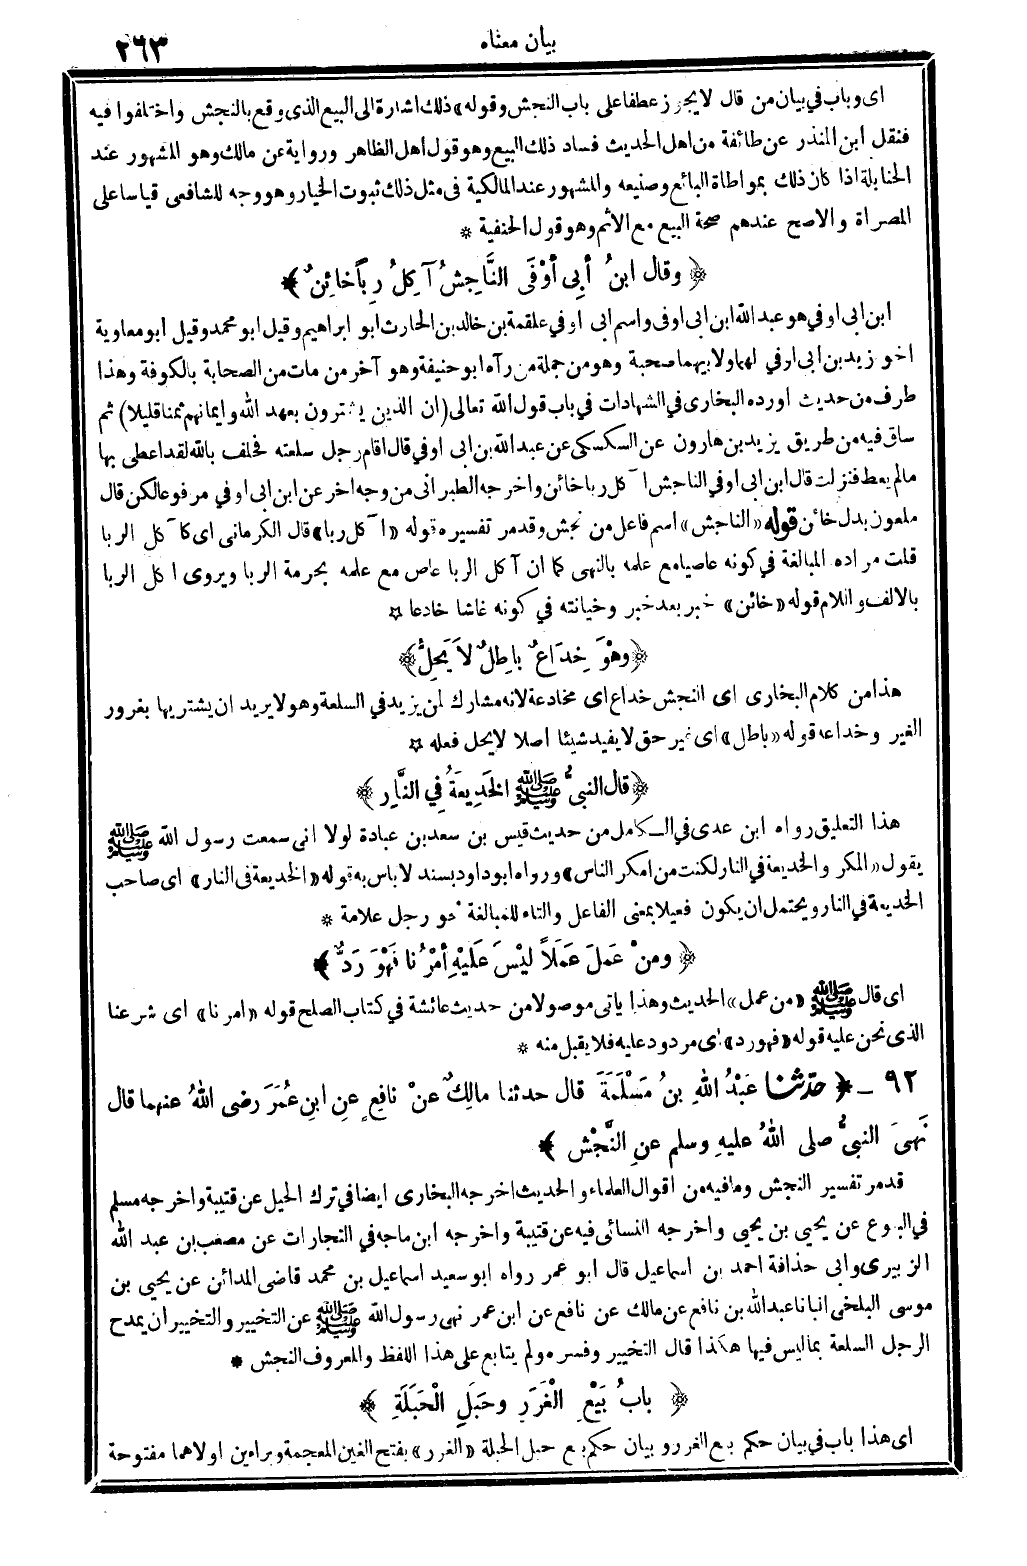 بيان معناه ٢٦٣
اى وباب فى بيان من قال لا يجوز عطفا على باب النجش وقوله» ذلك اشارة الى البيع الذى وقع بالنجش واختلفوا فيه
فنقل ابن المنذر عن طائفة من اهل الحديث فساد ذلك البيع وهو قول أهل الظاهر ورواية عن مالك وهو المشهور عند
الحنابلة اذا كان ذلك بمواطاة البائع وصنيعه والمشهور عند المالكية فى مثل ذلك ثبوت الخيار وهو وجه للشافعى قياسا على
المصراة والاصح عندهم صحة البيع مع الاثم وهو قول الحنفية *
﴿ وقال ابنُ أبِى أوْفَى النَّاجِشُ آكِلُ رِباً خائِنٌ ﴾
ابن ابى اوفي هو عبد الله ابن ابى اوفى واسم ابى اوفي علقمة بن خالد بن الحارث ابو ابراهيم وقيل ابو محمد وقيل أبو معاوية
اخو زيد بن ابى اوفي لهما ولابيهما صحبة وهو من جملة من رآه ابو حنيفة وهو آخر من مات من الصحابة بالكوفة وهذا
طرف من حديث اورده البخارى في الشهادات في باب قول الله تعالى (ان الذين يشترون بعهد الله وايمانهم ثمنا قليلا) ثم
ساق فيه من طريق يزيد بن هارون عن السكسكى عن عبد الله بن ابى اوفي قال اقام رجل سلعته فحلف بالله لقد اعطى بها
مالم يعط فنزلت قال ابن ابى اوفي الناجش آكل ربا خائن واخرجه الطبرانى من وجه اخر عن ابن ابى اوفي مرفوعا لكن قال
ملعون بدل خائن قوله «الناجش» اسم فاعل من نجش وقد مر تفسيره قوله «آكل ربا» قال الكرمانى اى كآكل الربا
قلت مراده المبالغة في كونه عاصيا مع علمه بالنهى كما ان آكل الربا عاص مع علمه بحرمة الربا ويروى اكل الربا
بالالف واللام قوله «خائن» خبر بعد خبر وخيانته في كونه غاشا خادعا ☆
﴿وهْوَ خِدَاعٌ باطِلٌ لاَ يَحِلُّ﴾
هذا من كلام البخارى اى النجش خداع اى مخادعة لانه مشارك لمن يزيد في السلعة وهو لا يريد ان يشتريها بغرور
الغير وخداعه قوله «باطل» اى غير حق لا يفيد شيئا اصلا لا يحل فعله ☆
﴿قال النبىُّ ﷺ الخَدِيعَةُ فِي النَّارِ ﴾
هذا التعليق رواه ابن عدى في الكامل من حديث قيس بن سعد بن عبادة لولا انى سمعت رسول الله ﷺ
يقول «المكر والخديعة في النار لكنت من امكر الناس» ورواه ابو داود بسند لا باس به قوله «الخديعة فى النار» اى صاحب
الخديعة في النار ويحتمل ان يكون فعيلا بمعنى الفاعل والتاء للمبالغة نحو رجل علامة *
﴿ ومنْ عَمَلَ عَمَلاً لَيْسَ عَلَيْهِ أمْرُنا فَهْوَ رَدٌّ ﴾
اى قال ﷺ «من عمل» الحديث وهذا ياتى موصولا من حديث عائشة في كتاب الصلح قوله «امرنا» اى شرعنا
الذى نحن عليه قوله «فهو رد» اى مردود عليه فلا يقبل منه *
٩٢ ـ ﴿ حدّثنا عَبْدُ اللهِ بنُ مَسْلَمَةَ قال حدثنا مالِكٌ عنْ نافِعٍ عنِ ابنِ عُمَرَ رضى اللهُ عنهما قال
نَهَى النبىُّ صلى اللهُ عليهِ وسلم عنِ النَّجْش ﴾
قد مر تفسير النجش وما فيه من اقوال العلماء والحديث اخرجه البخارى ايضا في ترك الحيل عن قتيبة واخرجه مسلم
في البيوع عن يحيى بن يحيى واخرجه النسائى فيه عن قتيبة واخرجه ابن ماجه في التجارات عن مصعب بن عبد الله
الزبيرى وابى حذافة احمد بن اسماعيل قال ابو عمر رواه ابو سعيد اسماعيل بن محمد قاضى المدائن عن يحيى بن
موسى البلخى انبانا عبد الله بن نافع عن مالك عن نافع عن ابن عمر نهى رسول الله ﷺ عن التخيير والتخيير أن يمدح
الرجل السلعة بما ليس فيها هكذا قال التخيير وفسره ولم يتابع على هذا اللفظ والمعروف النجش *
﴿ بابُ بَيْعِ الْغَرَرِ وحَبَلِ الْحَبَلَةِ ﴾
اى هذا باب في بيان حكم بيع الغرر و بيان حكم بيع حبل الحبلة «الغرر» بفتح الغين المعجمة وبراءين اولاهما مفتوحة